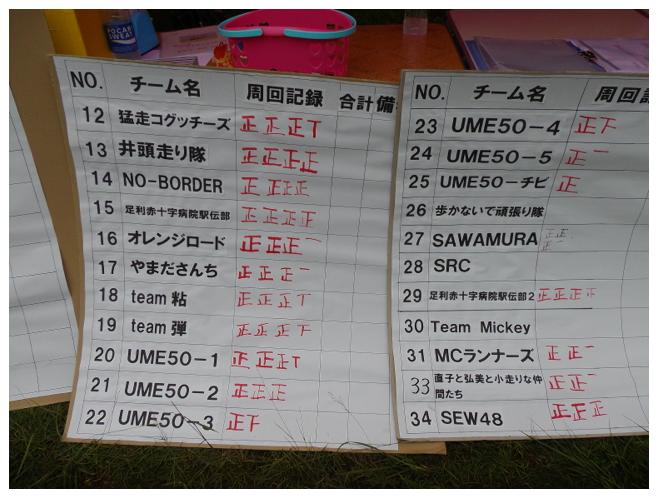 POCARI SWEAT
NO. チーム名 周回記録 合計 備
12 猛走コグッチーズ 正 正 正 T
13 井頭走り隊 正 正 正 正
14 NO-BORDER 正 正 正 正
15 足利赤十字病院駅伝部 正 正 正 正
16 オレンジロード 正 正 正 一
17 やまださんち 正 正 正 一
18 team 粘 正 正 正 T
19 team 弾 正 正 正 下
20 UME50-1 正 正 正 T
21 UME50-2 正 正 正
22 UME50-3 正 下
NO. チーム名 周回
23 UME50-4 正 下
24 UME50-5 正 一
25 UME50-チビ 正
26 歩かないで頑張り隊
27 SAWAMURA 正 正
正
28 SRC
29 足利赤十字病院駅伝部2 正 正 正
30 Team Mickey
31 MCランナーズ 正 正 一
33 直子と弘美と小走りな仲
間たち 正 正 一
34 SEW48 正 正 正